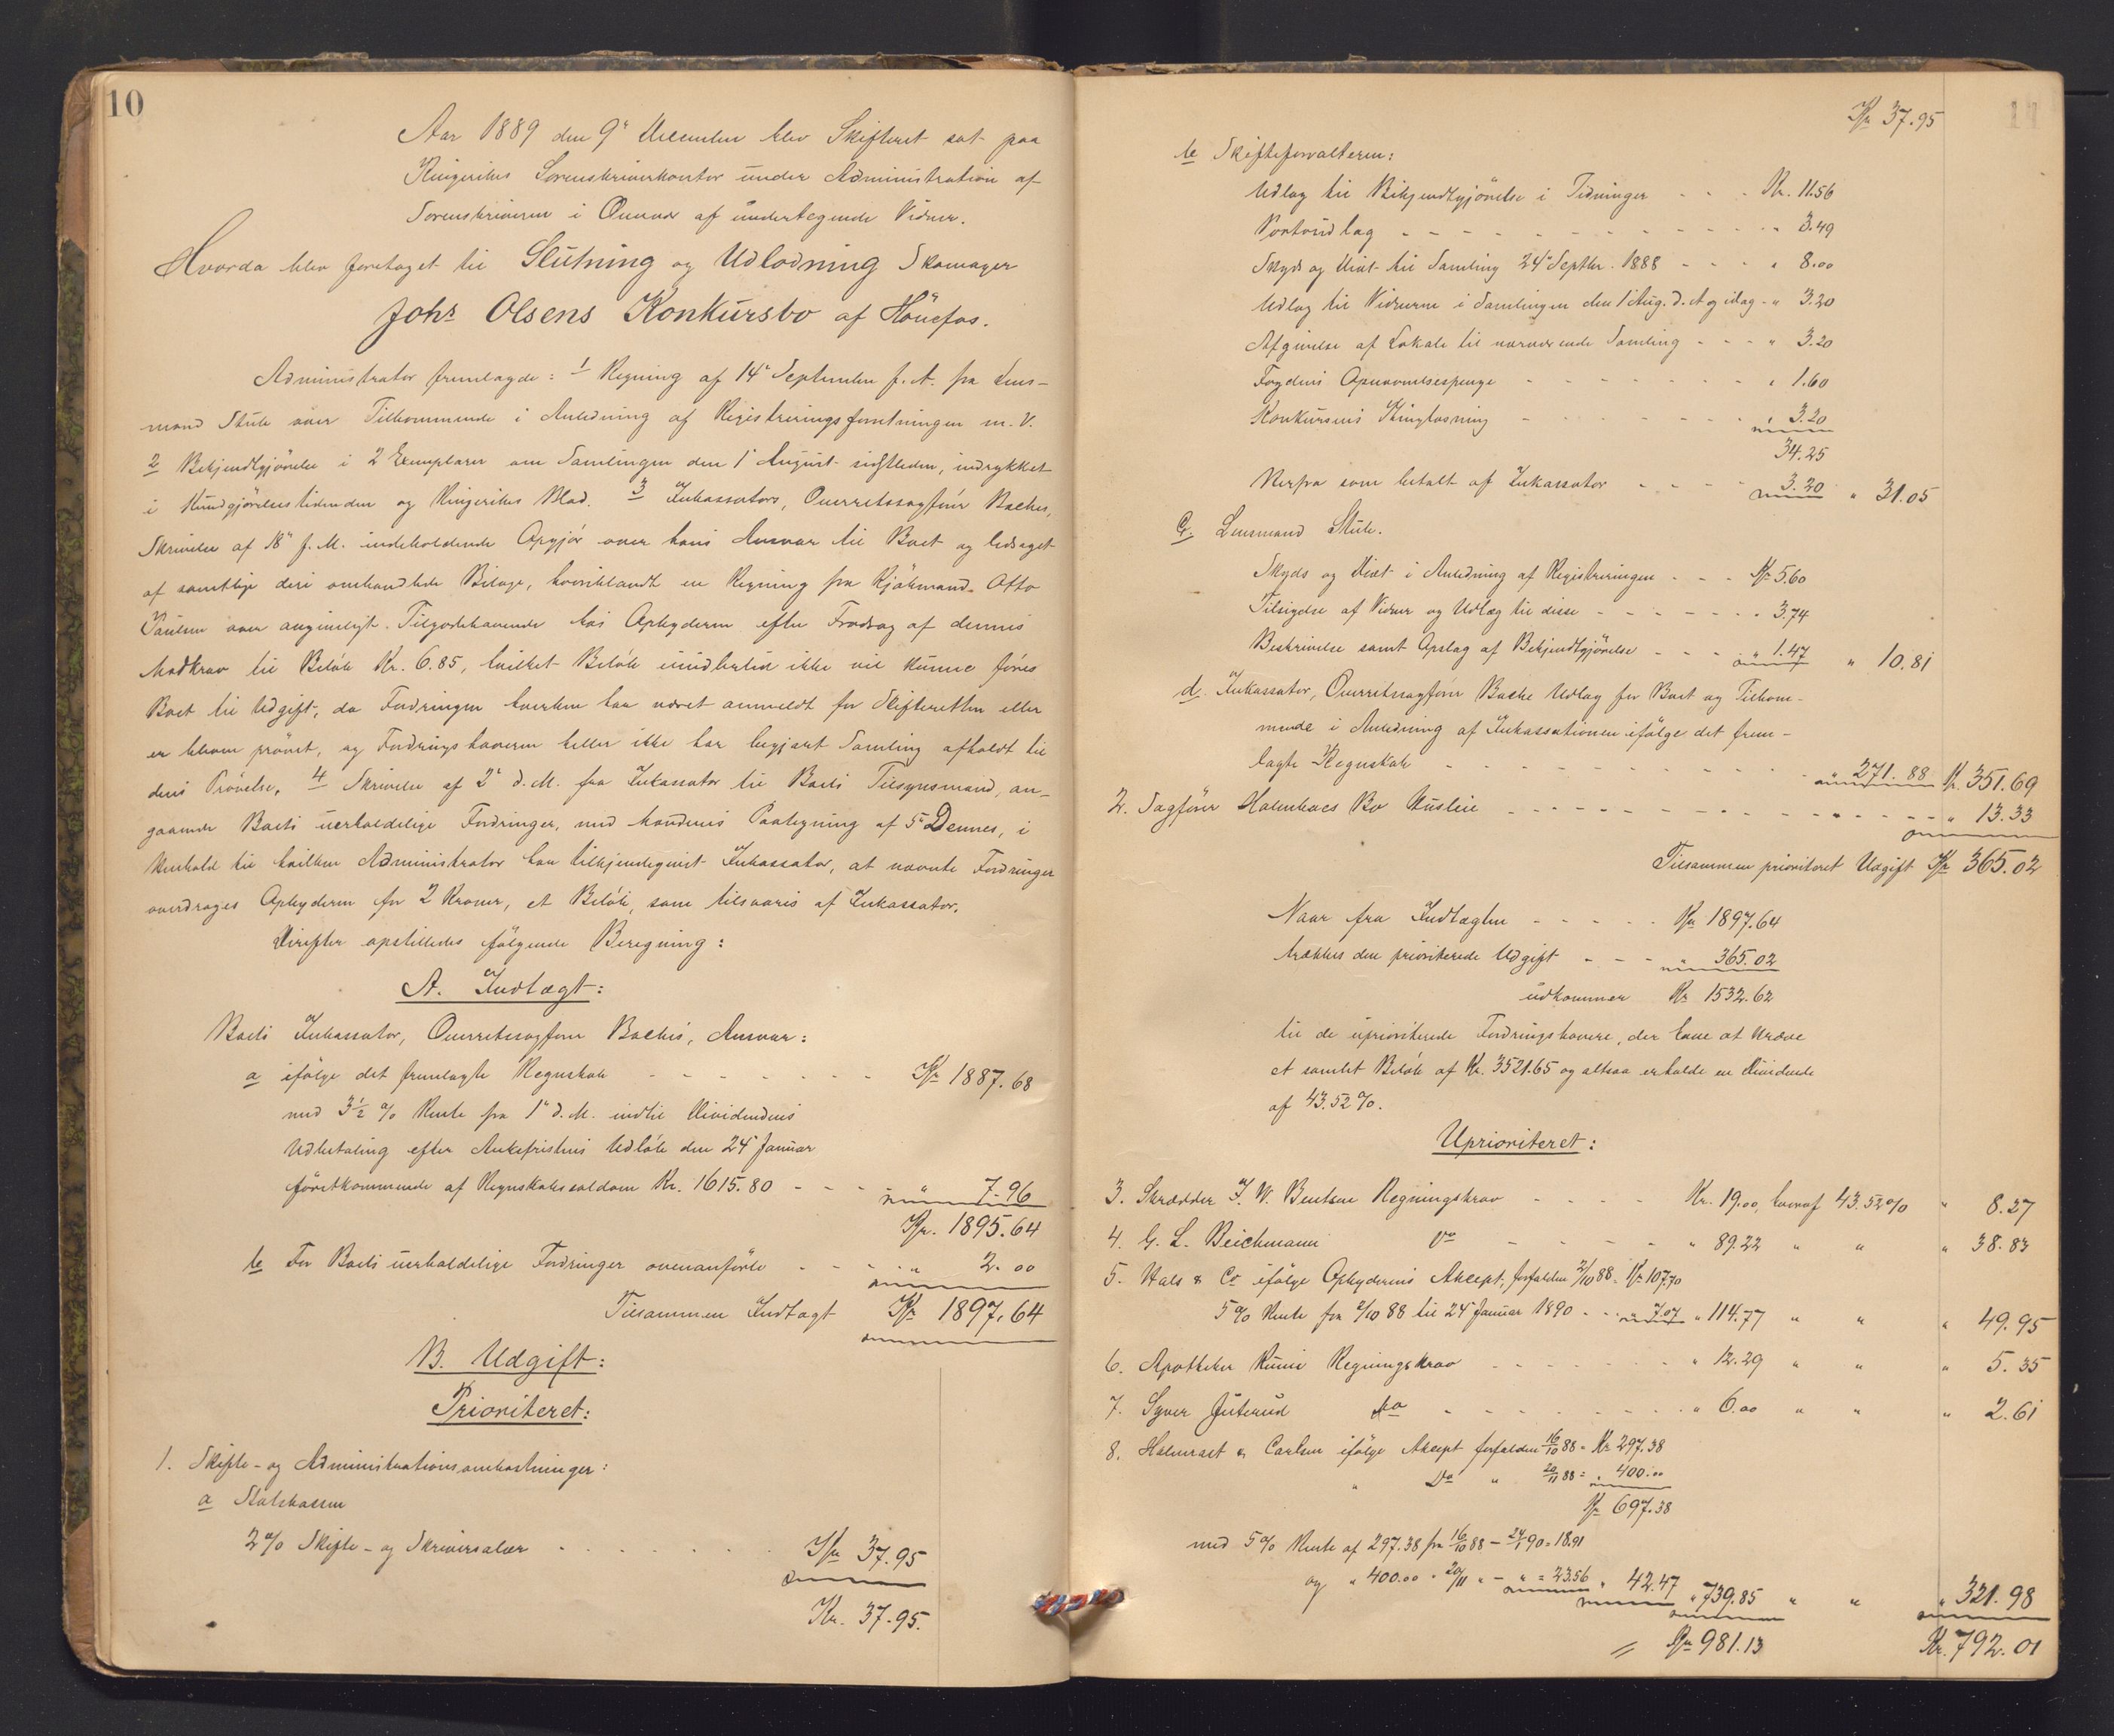 10
Aar 1889 den 9de December blev Skifteret sat paa
Ringerikes Sorenskriverkontor under Administration af
Sorenskriveren i Overvær af undertegnede Vidner.
Hvorda blev foretaget til Slutning og Udlodning Skomager
Johs Olsens Konkursbo af Hönefos.
Administrator fremlagde: 1 Regning af 14de September f. A. fra Lens-
mand Stub over Tilkommende i Anledning af Registreringsforretningen m. V.
2 Bekjendtgjörelse i 2 Exemplarer om Samlingen den 1 August sidstleden, indrykket
i Kundgjörelsestidenden og Ringerikes Blad. 3 Inkassators, Overretssagförer Baches,
Skrivelse af 18de f. M. indeholdende Opgjör over hans Ansvar til Boet og ledsaget
af samtlige deri omhandlede Bilage, hvoriblandt en Regning fra Kjöbmand Otto
Paulsen over angiveligt Tilgodehavende hos Opbyderen efter Fradrag af dennes
Modkrav til Beløb Kr. 6.85, hvilket Beløb imidlertid ikke vil kunne föres
Boet til Udgift, da Fordringen hverken har været anmeldt for Skifteretten eller
er bleven prövet, og Fordringshaveren heller ikke har begjært Samling afholdt til
dens Prövelse. 4 Skrivelse af 2de d. M. fra Inkassator til Boets Tilsynsmand, an-
gaaende Boets uerholdelige Fordringer, med Mandens Paategning af 5 Dennes, i
Henhold til hvilken Administrator har tilkjendegivet Inkassator, at nævnte Fordringer
overdrages Opbyderen for 2 Kroner, et Beløb, som tilsvares af Inkassator.
Derefter opstilledes fölgende Beregning:
A. Indtægt:
Boets Inkassator, Overretssagförer Baches, Ansvar:
a ifölge det fremlagte Regnskab - - - - - - - Kr 1887.68
med 3½ % Rente fra 1 d. M. indtil Dividendens
Udbetaling efter Ankefristens Udløb den 24 Januar
förstkommende af Regnskabssaldoen Kr. 1615.80 - - - " 7.96
Kr. 1895.64
b For Boets uerholdelige Fordringer ovenanförte - - - " 2.00
Tilsammen Indtægt Kr 1897.64
B. Udgift:
Prioriteret:
1. Skifte- og Administrationsomkostninger:
a Statskassen
2% Skifte- og Skriversalær - - - - - - Kr 37.95
Kr. 37.95.
11
Kr 37.95
b Skifteforvalteren:
Udlag til Bekjendtgjörelse i Tidninger - - - Kr. 11.56
Portoudlag - - - - - - - - - - - " 3.49
Skyds og Diæt til Samling 24de Septbr. 1888 - - - " 8.00
Udlag til Vidnerne i Samlingen den 1 Aug. d. A og idag - " 3.20
Afgivelse af Lokale til nærværende Samling - - - " 3.20
Fogdens Opnævnelsespenge - - - - - - " 1.60
Konkursens Thinglæsning - - - - - - " 3.20
34.25
Herfra som betalt af Inkassator - - - - " 3.20 " 31.05
c. Lensmand Stub.
Skyds og Diæt i Anledning af Registreringen - - - Kr 5.60
Tilsigelse af Vidner og Udlæg til disse - - - - - - " 3.74
Beskrivelse samt Opslag af Bekjendtgjörelse - - - " 1.47 " 10.81
d. Inkassator, Overretssagförer Bache Udlag for Boet og Tilkom-
mende i Anledning af Inkassationen ifölge det frem-
lagte Regnskab - - - - - - - - " 271.88 Kr. 351.69
2. Sagförer Holmboes Bo Husleie - - - - - - - - - - " 13.33
Tilsammen prioriteret Udgift Kr 365.02
Naar fra Indtægten - - - - - Kr 1897.64
trækkes den prioriterede Udgift - - - " 365.02
udkommer Kr 1532.62
til de uprioriterede Fordringshavere, der have at kræve
et samlet Beløb af Kr. 3521.65 og altsaa erholde en Dividende
af 43.52%.
Uprioriteret:
3. Skrædder J. W. Bentsen Regningskrav - - - - Kr. 19.00, hvoraf 43.52% " 8.27
4. G. L. Beichmann Do - - - - - " 89.22 " " " 38.83
5. Hals & Co ifölge Opbyderens Akcept, forfalden 2/10 88 = Kr 107.70
5% Rente fra 2/10 88 til 24 Januar 1890 - - " 7.07 " 114.77 " " " 49.95
6. Apotheker Regningskrav - - - - - - " 12.29 " " " 5.35
7. Syver Juterud Do - - - - - - - - " 6.00 " " " 2.61
8. Holmraet & Carlsen ifölge Akcept forfalden 16/10 88 = Kr 297.38
" Do " 20/11 88 = " 400.00
Kr 697.38
med 5% Rente af 297.38 fra 16/10 88 - 24/1 90 = 18.91
og " 400.00 " 20/11 " - " = 23.56 " 42.47 " 739.85 " " " 321.98
= Kr 981.13 Kr. 792.01